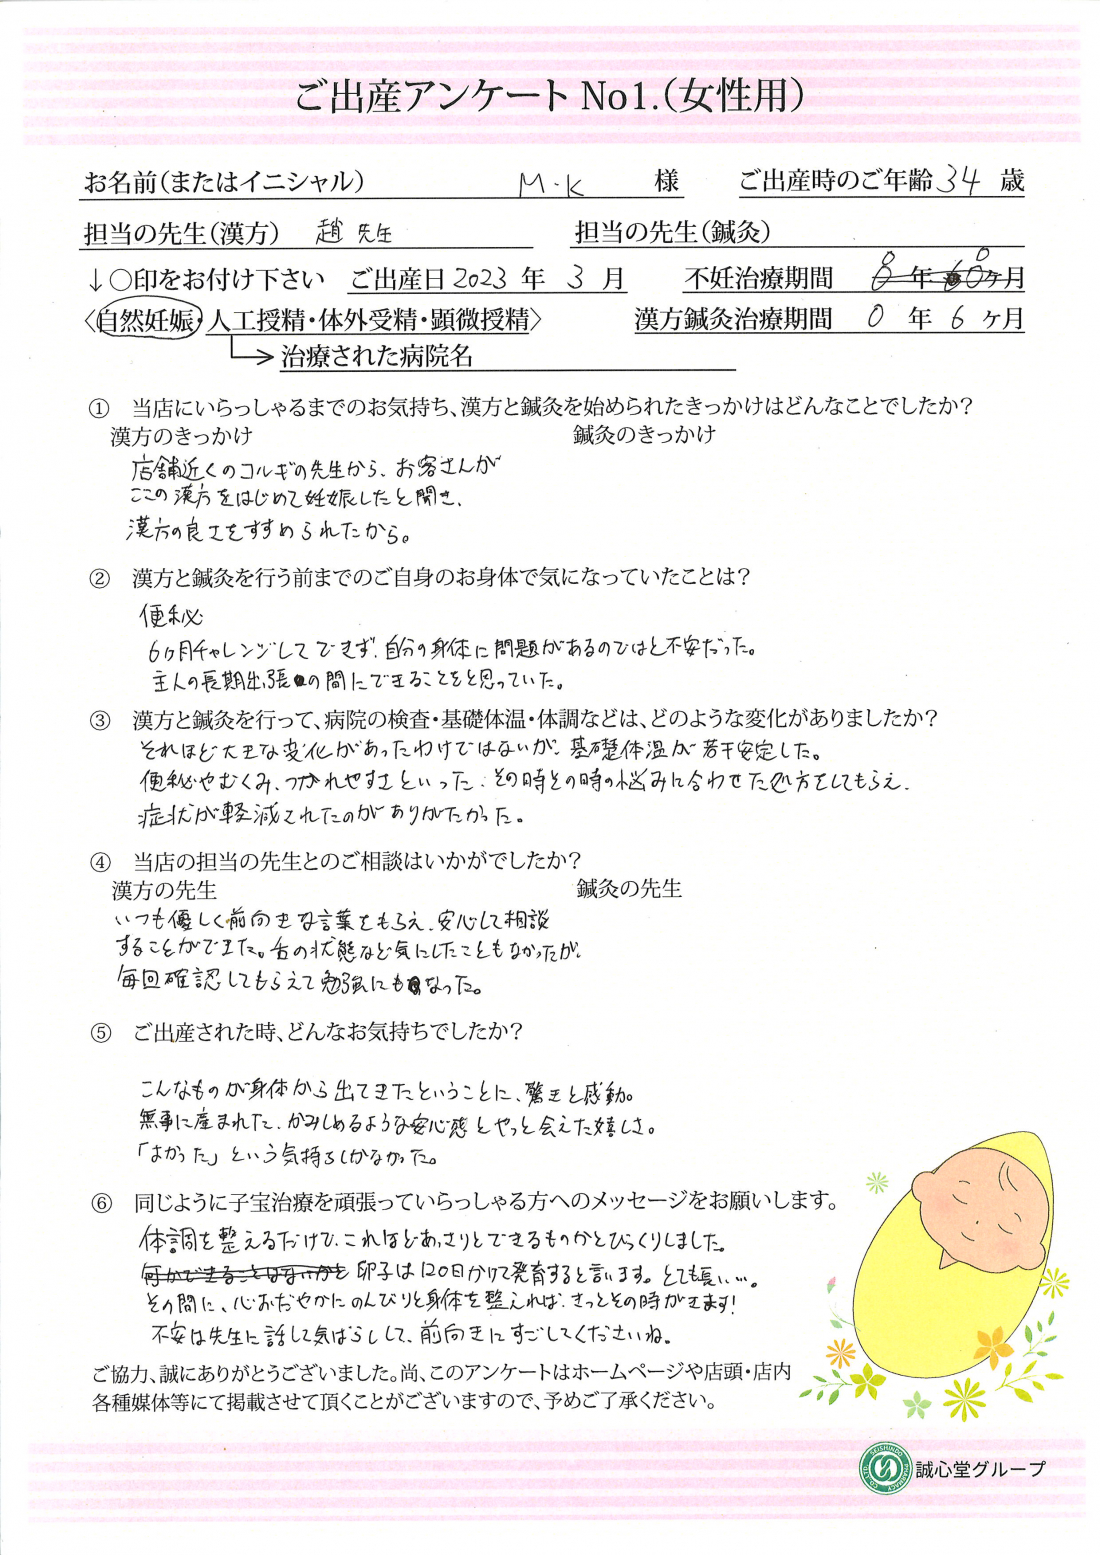 ご出産アンケート No1.(女性用)
お名前(またはイニシャル) M・K 様 ご出産時のご年齢 34 歳
担当の先生(漢方) 趙先生 担当の先生(鍼灸)
↓○印をお付け下さい ご出産日 2023 年 3 月 不妊治療期間 0 年 0 ヶ月
〈自然妊娠・人工授精・体外受精・顕微授精〉 漢方鍼灸治療期間 0 年 6 ヶ月
治療された病院名
① 当店にいらっしゃるまでのお気持ち、漢方と鍼灸を始められたきっかけはどんなことでしたか?
漢方のきっかけ 鍼灸のきっかけ
店舗近くのコルギの先生から、お客さんが
ここの漢方をはじめて妊娠したと聞き、
漢方の良さをすすめられたから。
② 漢方と鍼灸を行う前までのご自身のお身体で気になっていたことは?
便秘
6ヶ月チャレンジしてできず、自分の身体に問題があるのではと不安だった。
主人の長期出張の間にできることをと思っていた。
③ 漢方と鍼灸を行って、病院の検査・基礎体温・体調などは、どのような変化がありましたか?
それほど大きな変化があったわけではないが、基礎体温が若干安定した。
便秘やむくみ、つかれやすさといった、その時その時の悩みに合わせた処方をしてもらえ、
症状が軽減されたのがありがたかった。
④ 当店の担当の先生とのご相談はいかがでしたか?
漢方の先生 鍼灸の先生
いつも優しく前向きな言葉をもらえ、安心して相談
することができた。舌の状態など気にしたこともなかったが、
毎回確認してもらえて勉強にもなった。
⑤ ご出産された時、どんなお気持ちでしたか?
こんなものが身体から出てきたということに、驚きと感動。
無事に産まれた、かみしめるような安心感とやっと会えた嬉しさ。
「よかった」という気持ちしかなかった。
⑥ 同じように子宝治療を頑張っていらっしゃる方へのメッセージをお願いします。
体調を整えるだけで、これほどあっさりとできるものかとびっくりしました。
何かできることはないかと 卵子は120日かけて発育すると言います。とても長い…。
その間に、心おだやかにのんびりと身体を整えれば、きっとその時がきます!
不安は先生に話して気ばらしして、前向きにすごしてくださいね。
ご協力、誠にありがとうございました。尚、このアンケートはホームページや店頭・店内
各種媒体等にて掲載させて頂くことがございますので、予めご了承ください。
SEISHINDO PHARMACY CO.,LTD. 誠心堂グループ